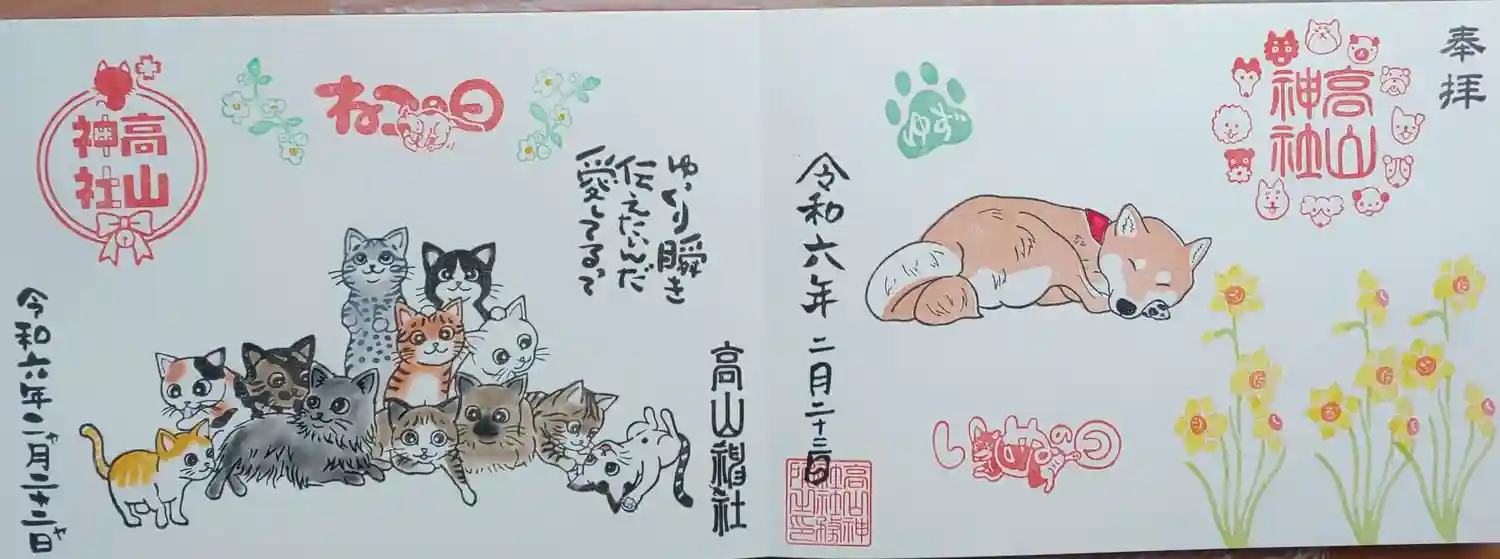 奉拝
高山
神社
ゆず
令和六年 二月二十二日
高山神
社社務
所之印
ねこの日
ゆっくり瞬き
伝えたいんだ
愛してるって
高山神社
高山
神社
令和六年二ャ月二ャ十二ャ日